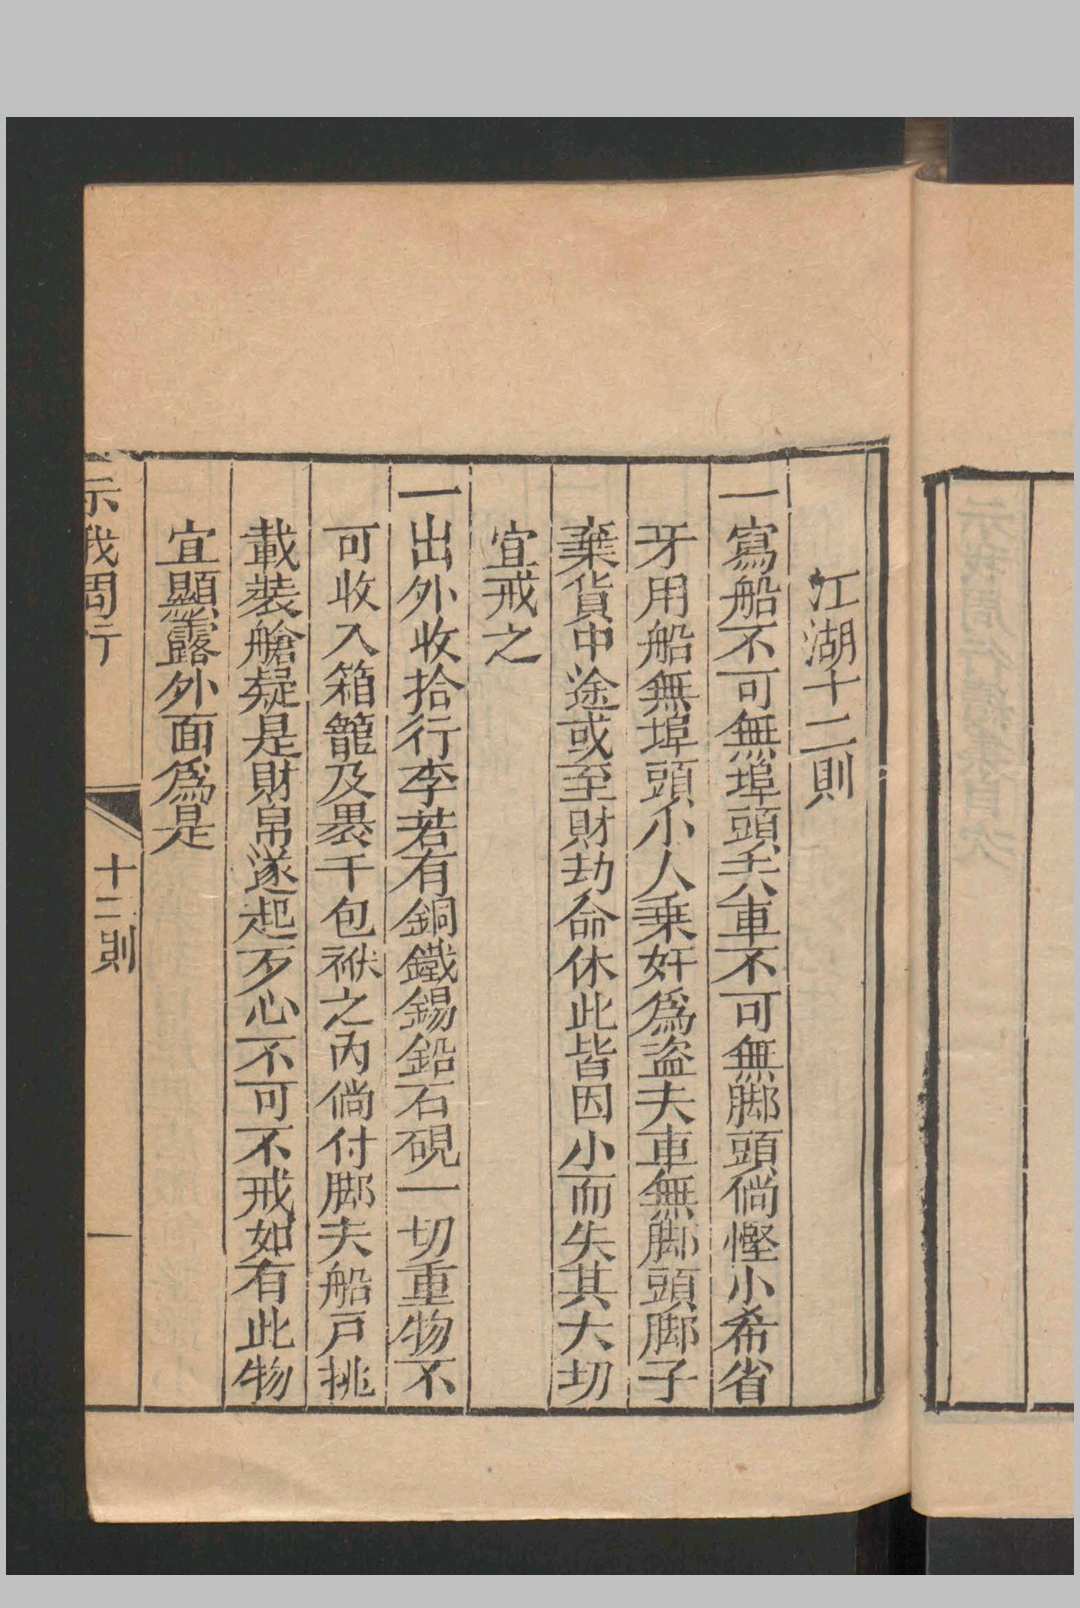 江湖十二則
一寫船不可無埠頭夫車不可無脚頭倘慳小希省
牙用船無埠頭小人乗奸爲盗夫車無脚頭脚子
棄貨中途或至財劫命休此皆因小而失其大切
宜戒之
一出外收拾行李若有銅鐵錫鉛石硯一切重物不
可收入箱籠及褁千包袱之内倘付脚夫船戸挑
載裝艙疑是財帛遂起歹心不可不戒如有此物
宜顯露外面爲是
示我周行
十二則
一